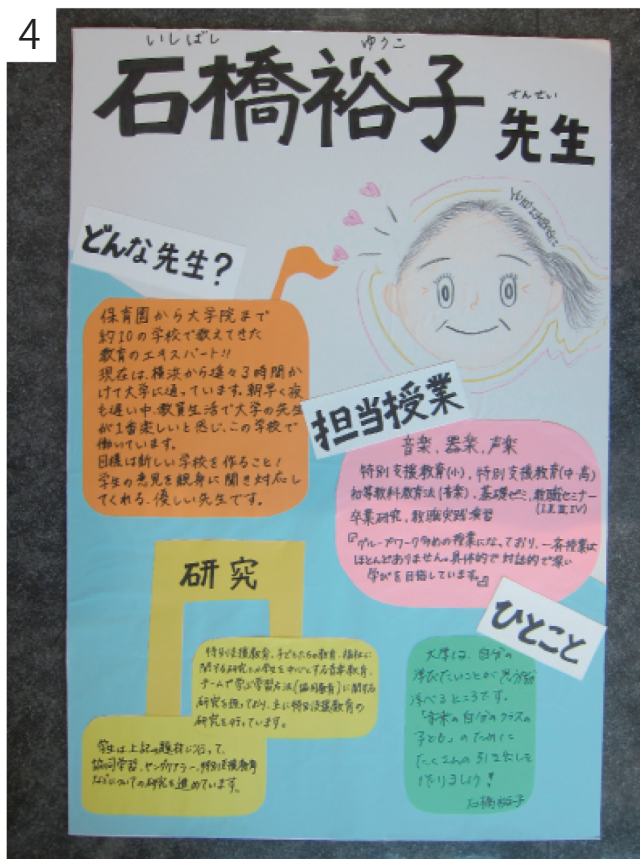 4
いしばし ゆうこ
石橋裕子
せんせい
先生
どんな先生?
保育園から大学院まで
約10の学校で教えてきた
教育のエキスパート!!
現在は、横浜から遥々3時間か
けて大学に通っています。朝早く夜
も遅い中、教員生活で大学の先生
が1番楽しいと感じ、この学校で
働いています。
目標は新しい学校を作ること!
学生の意見を親身に聞き対応し
てくれる、優しい先生です。
担当授業
音楽、器楽、声楽
特別支援教育(小)、特別支援教育(中・高)
初等教科教育法(音楽)、基礎ゼミ、教職セミナー
(I.II.III.IV)
卒業研究、教職実践演習
『グループワーク多めの授業になっており、一斉授業は
ほとんどありません。具体的で対話的で深い
学びを目指しています。』
研究
特別支援教育、子どもたちの教育、福祉に
関する研究や学生を中心とする音楽教育、
チームで学ぶ学習方法(協同教育)に関する
研究を担っており、主に特別支援教育の
研究を行っています。
学生は上記の題材に沿って、
協同学習、ヤングケアラー、特別支援教育
などについての研究を進めています。
ひとこと
大学は、自分の
学びたいことが思う存分
学べるところです。
「未来の自分のクラスの
子ども」のために
たくさんの引き出しを
作りましょう!
石橋裕子